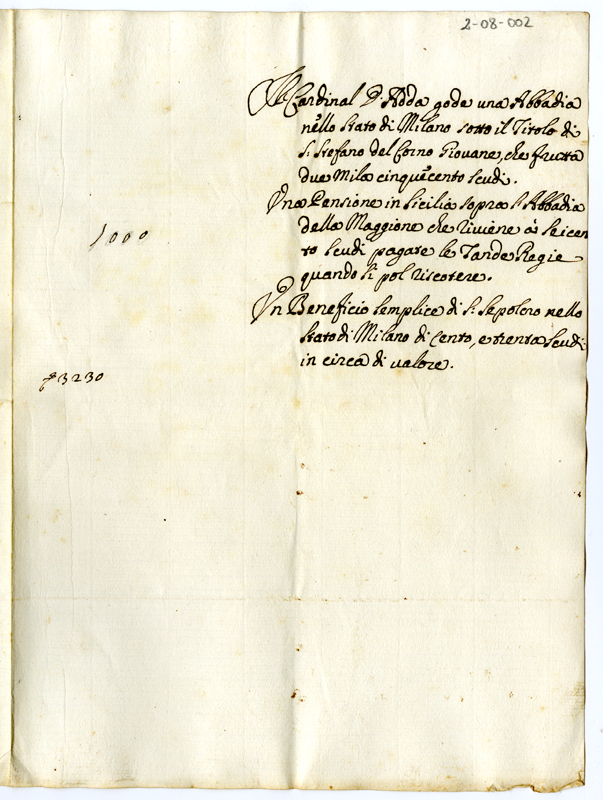 2-08-002
Il Cardinal D'Adda gode una Abbadia
nello Stato di Milano sotto il Titolo di
S. Stefano del Corno Giovane, che frutta
due Mila cinquecento scudi.
Una Pensione in Sicilia sopra l'Abbadia
della Maggione che riviene à seicen
to scudi pagate le Tande Regie
quando si pol riscotere.
1000
Un Beneficio semplice di S. Sepolcro nello
Stato di Milano di cento, e trenta scudi
in circa di valore.
3230